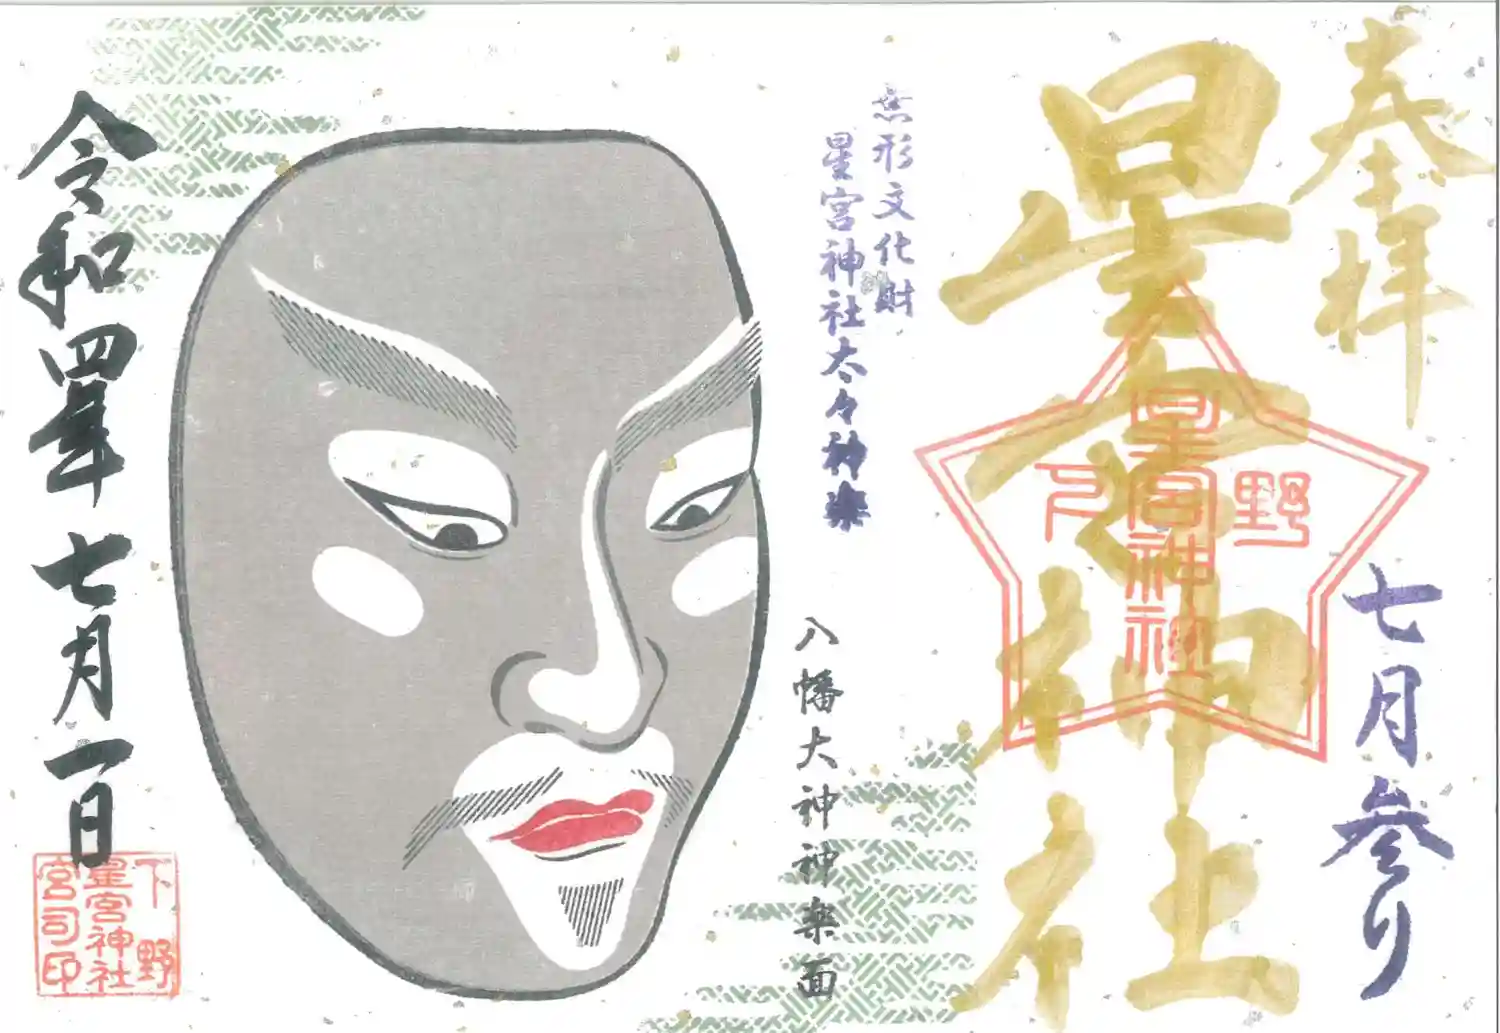 奉拝
七月参り
星宮神社
下野
星宮神社
無形文化財
星宮神社太々神楽
八幡大神神楽面
令和四年七月一日
下野
星宮神社
宮司印